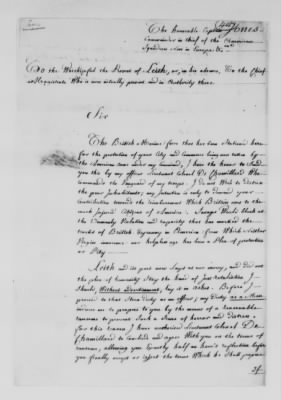 The Honorable Captain Jones
Commander in Chief of the American
Squadron now in Europe &ca
To the Worshipful the Provost of Leith, or, in his absence, To the Chief
Magistrate Who is now actually present and in Authority there.
Sir
The British Marine force that has been Stationed here
for the protection of your City and Commerce being now taken by
the American arms under my Command, I have the honor to send
you this by my officer Lieutenant Colonel De Chamillard Who
commands the Vanguard of my troops. I do not Wish to distress
the poor Inhabitants; my Intention is only to demand your
Contribution towards the reimbursement Which Britain owes to the
much Injured Citizens of America. Savages Would blush at
the Unmanly Violation and rapacity that has marked the
tracks of British Tyranny in America from Which Neither
Virgin innocence nor helpless age has been a Plea of protection
or Pity.
Leith and its port now lays at our mercy, and did not
the plea of humanity Stay the hand of Just retaliation I
Should, Without Advertisement, lay it in Ashes. Before I
proceed to that Stern Duty as an officer, my Duty as a Man
induces me to propose to you by the means of a reasonable
ransom to prevent Such a Scene of horror and distress.
for this reason I have authorised Lieutenant Colonel De
Chamillard to Conclude and agree With you on the terms of
ransom, allowing you Exactly half an hour's reflection before
you finally accept or reject the terms Which he Shall propose